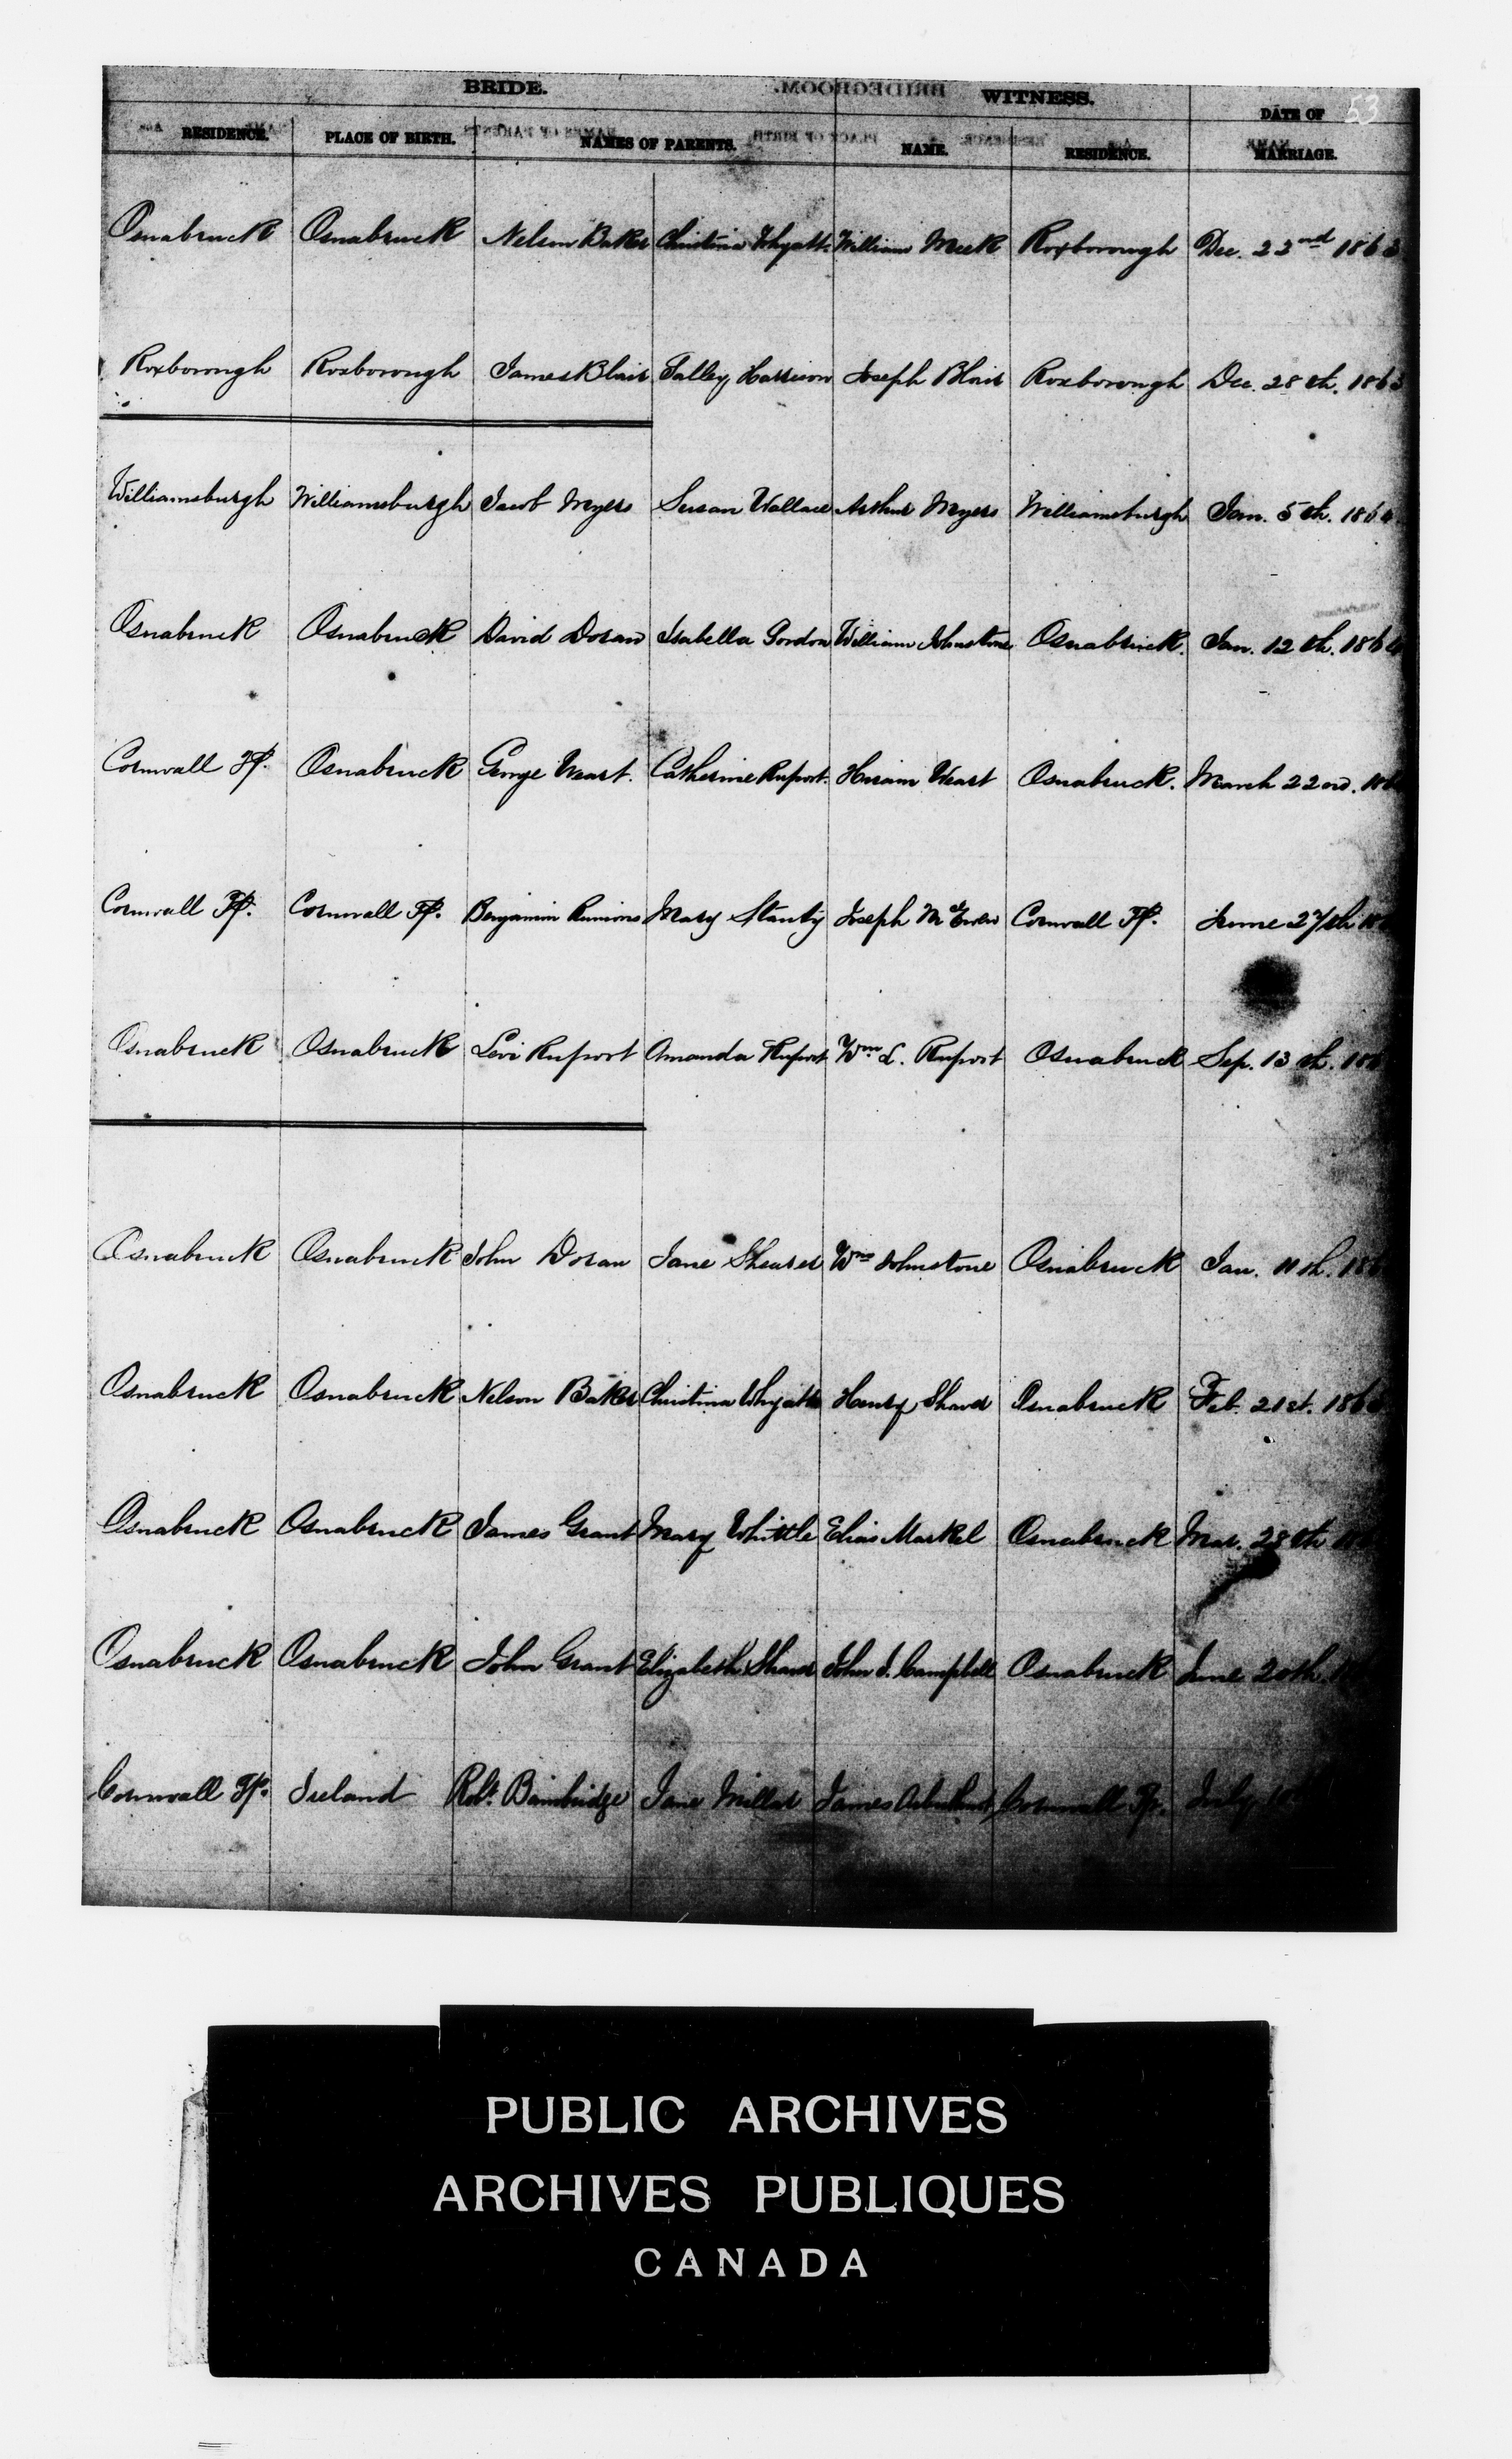 53
BRIDE. WITNESS. DATE OF
RESIDENCE. PLACE OF BIRTH. NAMES OF PARENTS. NAME. RESIDENCE. MARRIAGE.
Osnabruck Osnabruck Nelson Baker Christina Whyatt William Meek Roxborough Dec. 22nd 1863
Roxborough Roxborough James Blair Salley Harrison Joseph Blair Roxborough Dec. 28th. 1863
Williamsburgh Williamsburgh Jacob Myers Susan Wallace Arthur Myers Williamsburgh Jan. 5th. 1864
Osnabruck Osnabruck David Doran Isabella Gordon William Johnstone Osnabruck. Jan. 12th. 1864
Cornwall Tp. Osnabruck George Weart. Catherine Ruport. Hiram Weart Osnabruck. March 22nd.
Cornwall Tp. Cornwall Tp. Benjamin Runions Mary Joseph McEwen Cornwall Tp. June 27th
Osnabruck Osnabruck Levi Ruport Amanda Ruport Wm. L. Ruport Osnabruck Sep. 13th.
Osnabruck Osnabruck John Doran Jane Shearer Wm Johnstone Osnabruck Jan. 11th.
Osnabruck Osnabruck Nelson Baker Christina Whyatt Henry Shaver Osnabruck Feb. 21st.
Osnabruck Osnabruck James Grant Mary Whittle Elias Markel Osnabruck Mar. 28th
Osnabruck Osnabruck John Grant Elizabeth Shaver John J. Campbell Osnabruck June 20th.
Cornwall Tp. Ireland Robt. Bainbridge Jane Millar James Cornwall Tp. July
PUBLIC ARCHIVES
ARCHIVES PUBLIQUES
CANADA